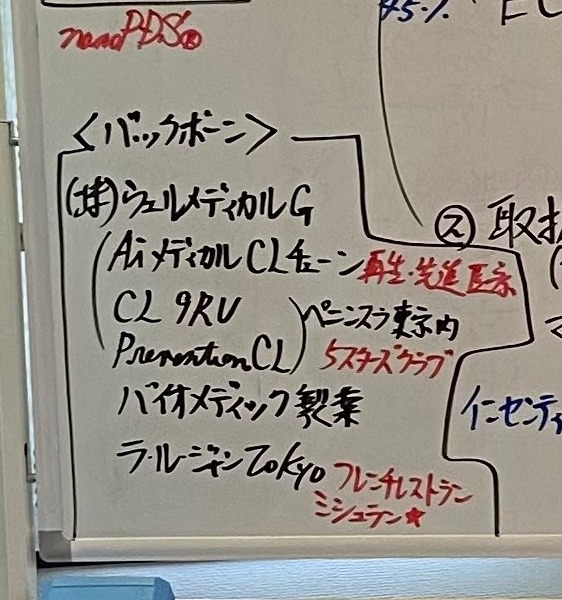 nanoPDS®
45.%
<バックボーン>
(株)ウェルメディカルG
Aiメディカル CLチェーン 再生・先進医療
CL 9RU
ペニンスラ東京内
Prevention CL
5スターズクラブ
バイオメディック製薬
ラ・ルージャンTOKYO フレンチレストラン
ミシュラン★
② 取扱
インセンティ